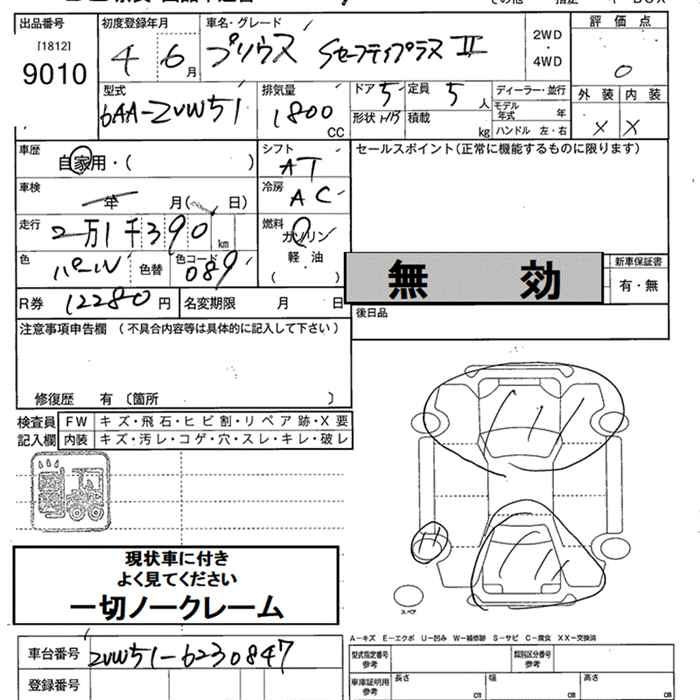 出品番号 初度登録年月 車名・グレード 2WD 4WD 評価点
[1812] 9010 4 6月 プリウス Sセーフティプラス II 0
型式 排気量 ドア 5 定員 5人 ディーラー・並行 外装 内装
6AA-ZVW51 1800 CC 形状 積載 kg モデル年式 年 ハンドル 左・右 X X
車歴 自家用・( ) シフト AT セールスポイント(正常に機能するものに限ります)
車検 年 月( 日) 冷房 AC
走行 2万1千390km 燃料 ガソリン
色 パール 色替 色コード 089 軽油 ( )
無 効 新車保証書 有・無
R券 12280円 名変期限 月 日 後日品
注意事項申告欄 (不具合内容等は具体的に記入して下さい)
修復歴 有 〔箇所 〕
検査員 FW キズ・飛石・ヒビ割・リペア跡・X要
記入欄 内装 キズ・汚レ・コゲ・穴・スレ・キレ・破レ
現状車に付き
よく見てください
一切ノークレーム
スペア
A-キズ E-エクボ U-凹み W-補修跡 S-サビ C-腐食 XX-交換済
車台番号 ZVW51-6230847 型式指定番号 参考 類別区分番号 参考
登録番号 車庫証明用 参考 長さ cm 幅 cm 高さ cm